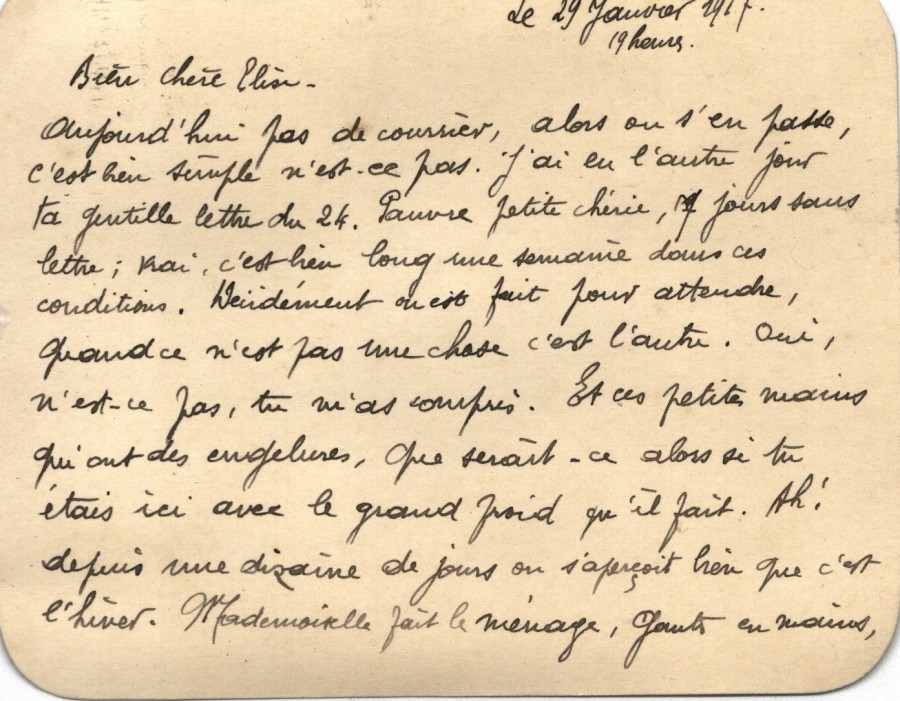 Le 29 Janvier 1917.
19 heures.
Bien chère Elise -
Aujourd'hui pas de courrier, alors on s'en passe,
c'est bien simple n'est-ce pas. J'ai eu l'autre jour
ta gentille lettre du 24. Pauvre petite chérie, 7 jours sans
lettre ; vrai, c'est bien long une semaine dans ces
conditions. Décidément on est fait pour attendre,
quand ce n'est pas une chose c'est l'autre. Oui,
n'est-ce pas, tu m'as compris. Et ces petites mains
qui ont des engelures, que serait-ce alors si tu
étais ici avec le grand froid qu'il fait. Ah!
depuis une dizaine de jours on s'aperçoit bien que c'est
l'hiver. Mademoiselle fait le ménage, gants en mains,